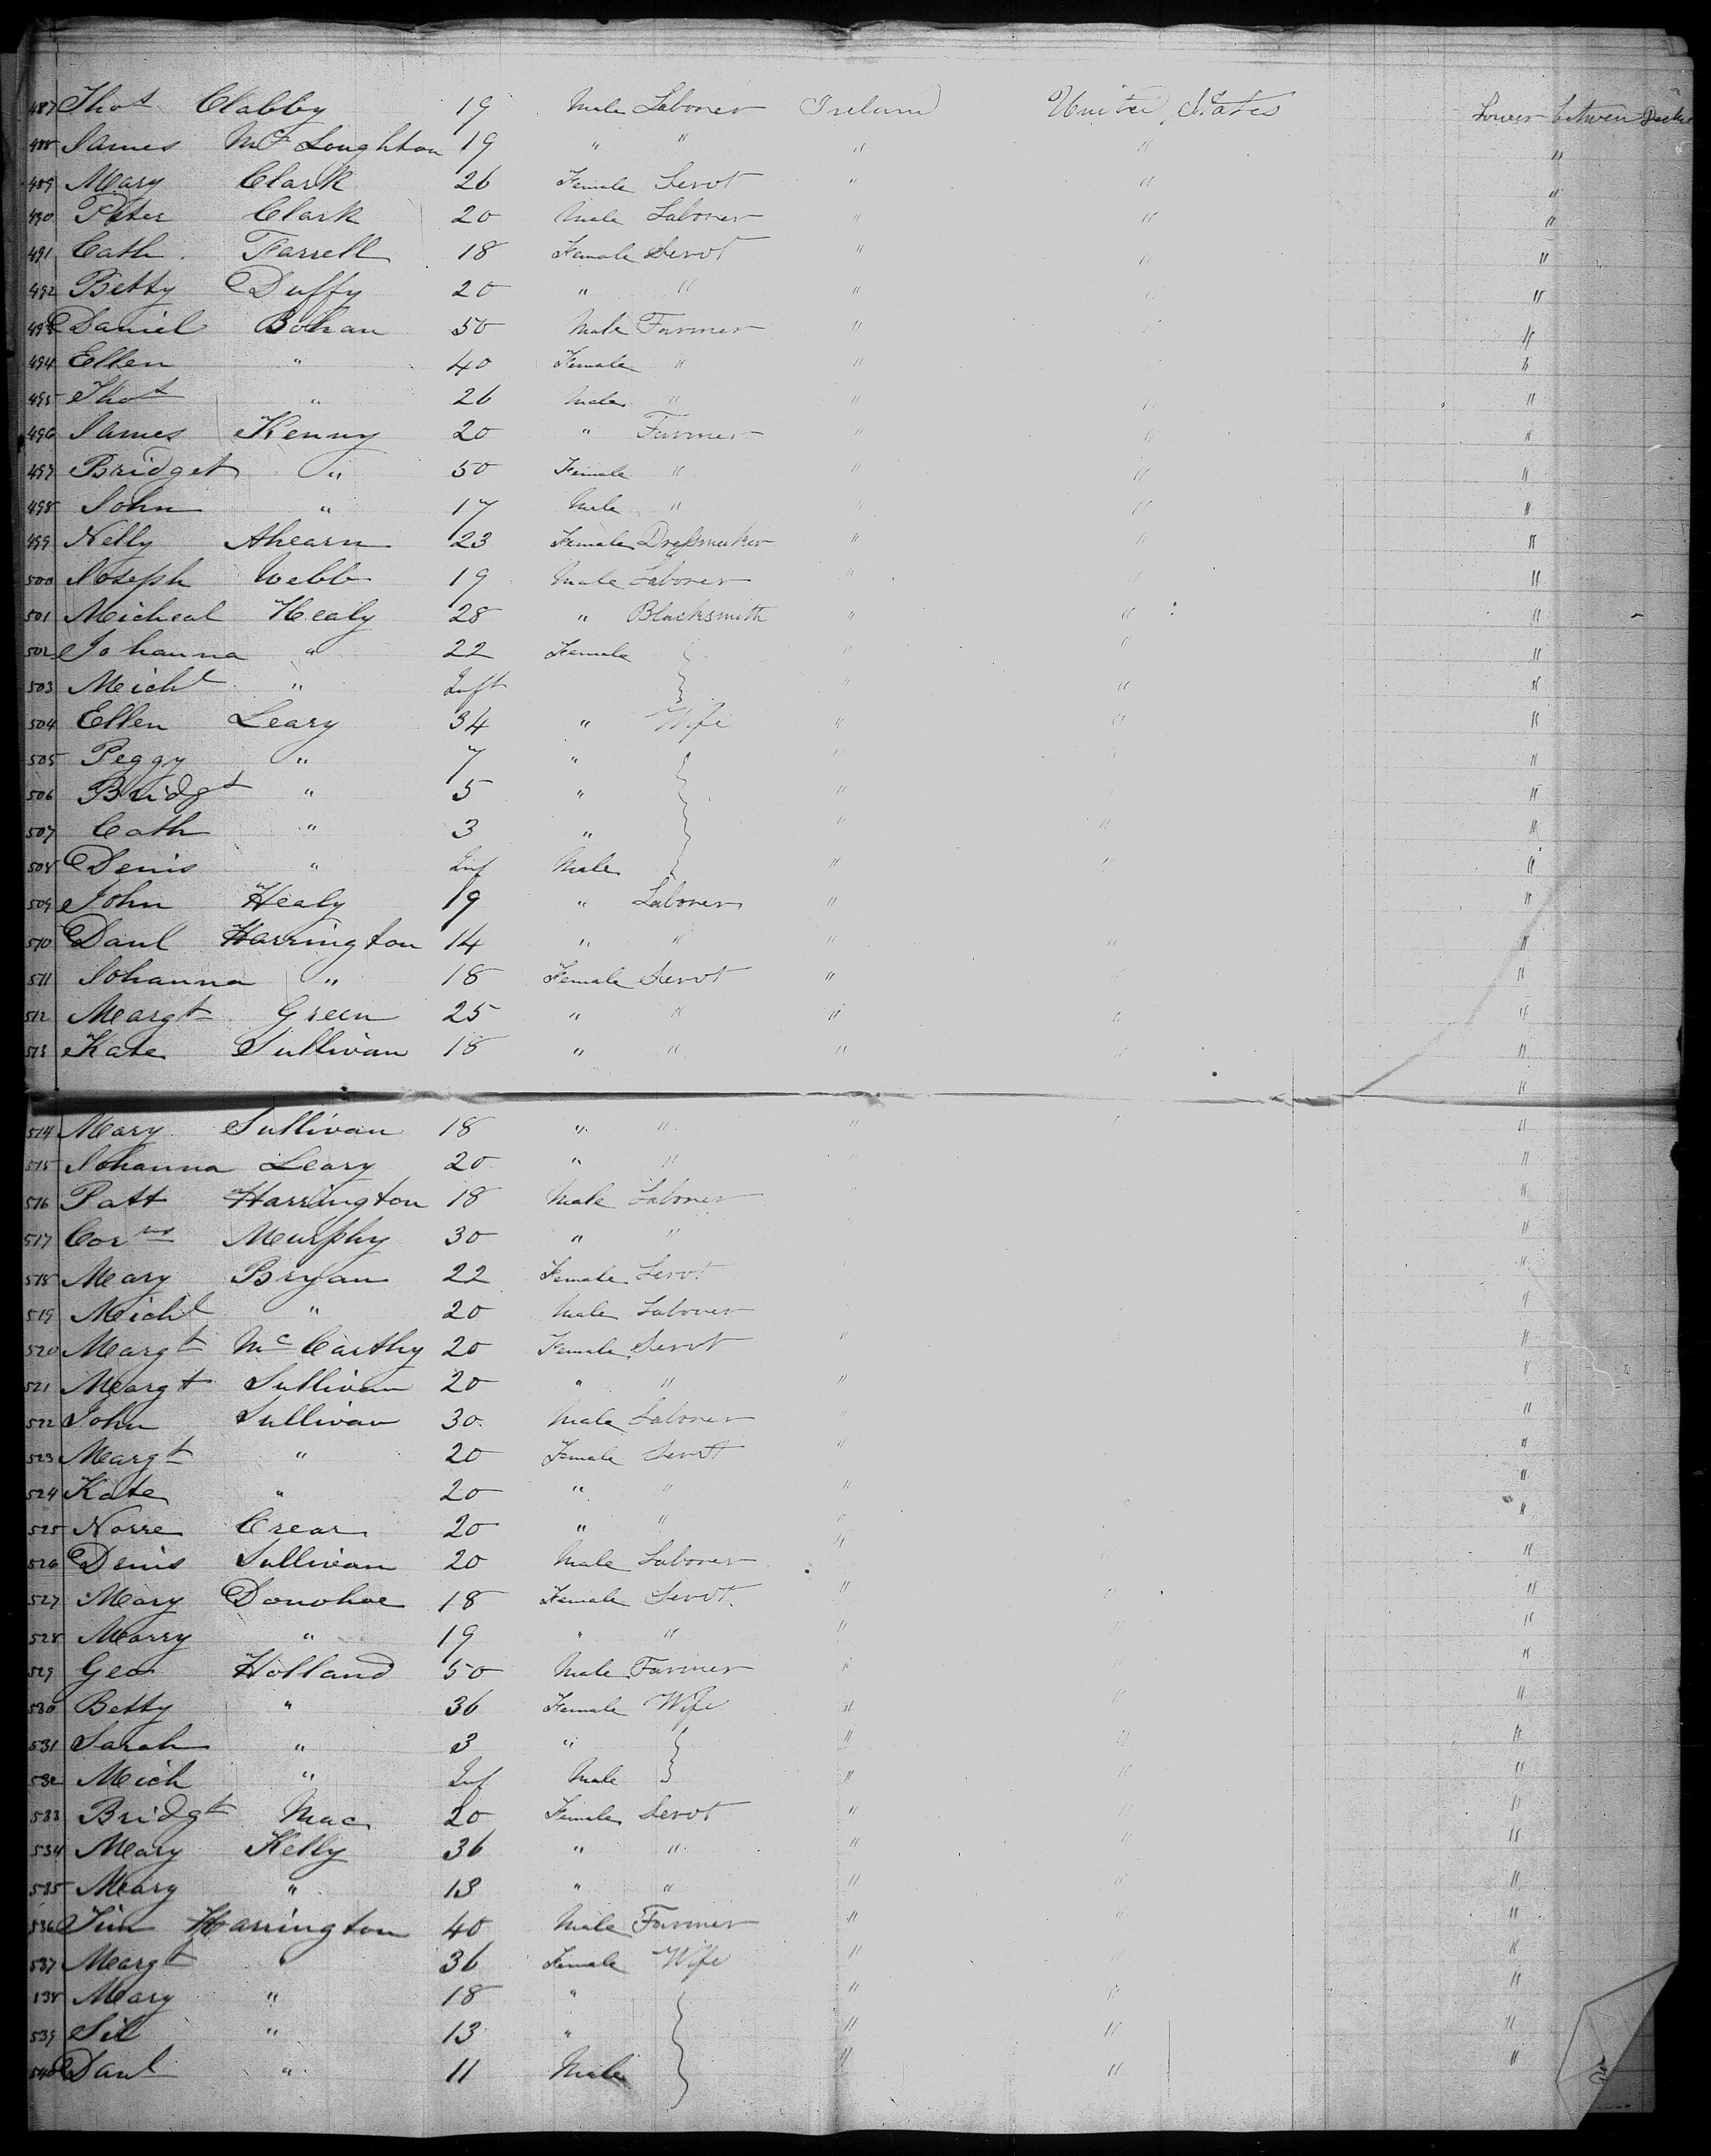 487 Thos Clabby 19 Male Laborer Ireland United States Lower between Decks
488 James McLoughton 19 " " " " "
489 Mary Clark 26 Female Servt " " "
490 Peter Clark 20 Male Laborer " " "
491 Cath Farrell 18 Female Servt " " "
492 Betty Duffy 20 " " " " "
493 Daniel Bohan 50 Male Farmer " " "
494 Ellen " 40 Female " " " "
495 Thos " 26 Male " " " "
496 James Kenny 20 " Farmer " " "
497 Bridget " 50 Female " " " "
498 John " 17 Male " " " "
499 Nelly Ahearn 23 Female Dressmaker " " "
500 Joseph Webb 19 Male Laborer " " "
501 Micheal Healy 28 " Blacksmith " " "
502 Johanna " 22 Female " " "
503 Michl " Inft " " "
504 Ellen Leary 34 " Wife " " "
505 Peggy " 7 " " " "
506 Bridgt " 5 " " " "
507 Cath " 3 " " " "
508 Denis " Inf Male " " "
509 John Healy 19 " Laborer " "
510 Danl Harrington 14 " " " " "
511 Johanna " 18 Female Servt " " "
512 Margt Green 25 " " " " "
513 Kate Sullivan 18 " " " " "
"
514 Mary Sullivan 18 " " " " "
515 Johanna Leary 20 " " "
516 Patt Harrington 18 Male Laborer "
517 Corns Murphy 30 " " "
518 Mary Bryan 22 Female Servt "
519 Michl " 20 Male Laborer "
520 Margt McCarthy 20 Female Servt " "
521 Margt Sullivan 20 " " " "
522 John Sullivan 30 Male Laborer "
523 Margt " 20 Female Servt " "
524 Kate " 20 " " " "
525 Norre Crear 20 " " " "
526 Denis Sullivan 20 Male Laborer " "
527 Mary Donohoe 18 Female Servt " " "
528 Marry " 19 " " " " "
529 Geo Holland 50 Male Farmer " " "
530 Betty " 36 Female Wife " " "
531 Sarah " 3 " " " "
532 Mich " Inf Male " " "
533 Bridgt Mac 20 Female Servt " " "
534 Mary Kelly 36 " " " " "
535 Mary " 13 " " " "
536 Tim Harrington 40 Male Farmer " " "
537 Margt " 36 Female Wife " "
538 Mary " 18 " " " "
539 Sil " 13 " " " "
540 Danl " 11 Male " " "